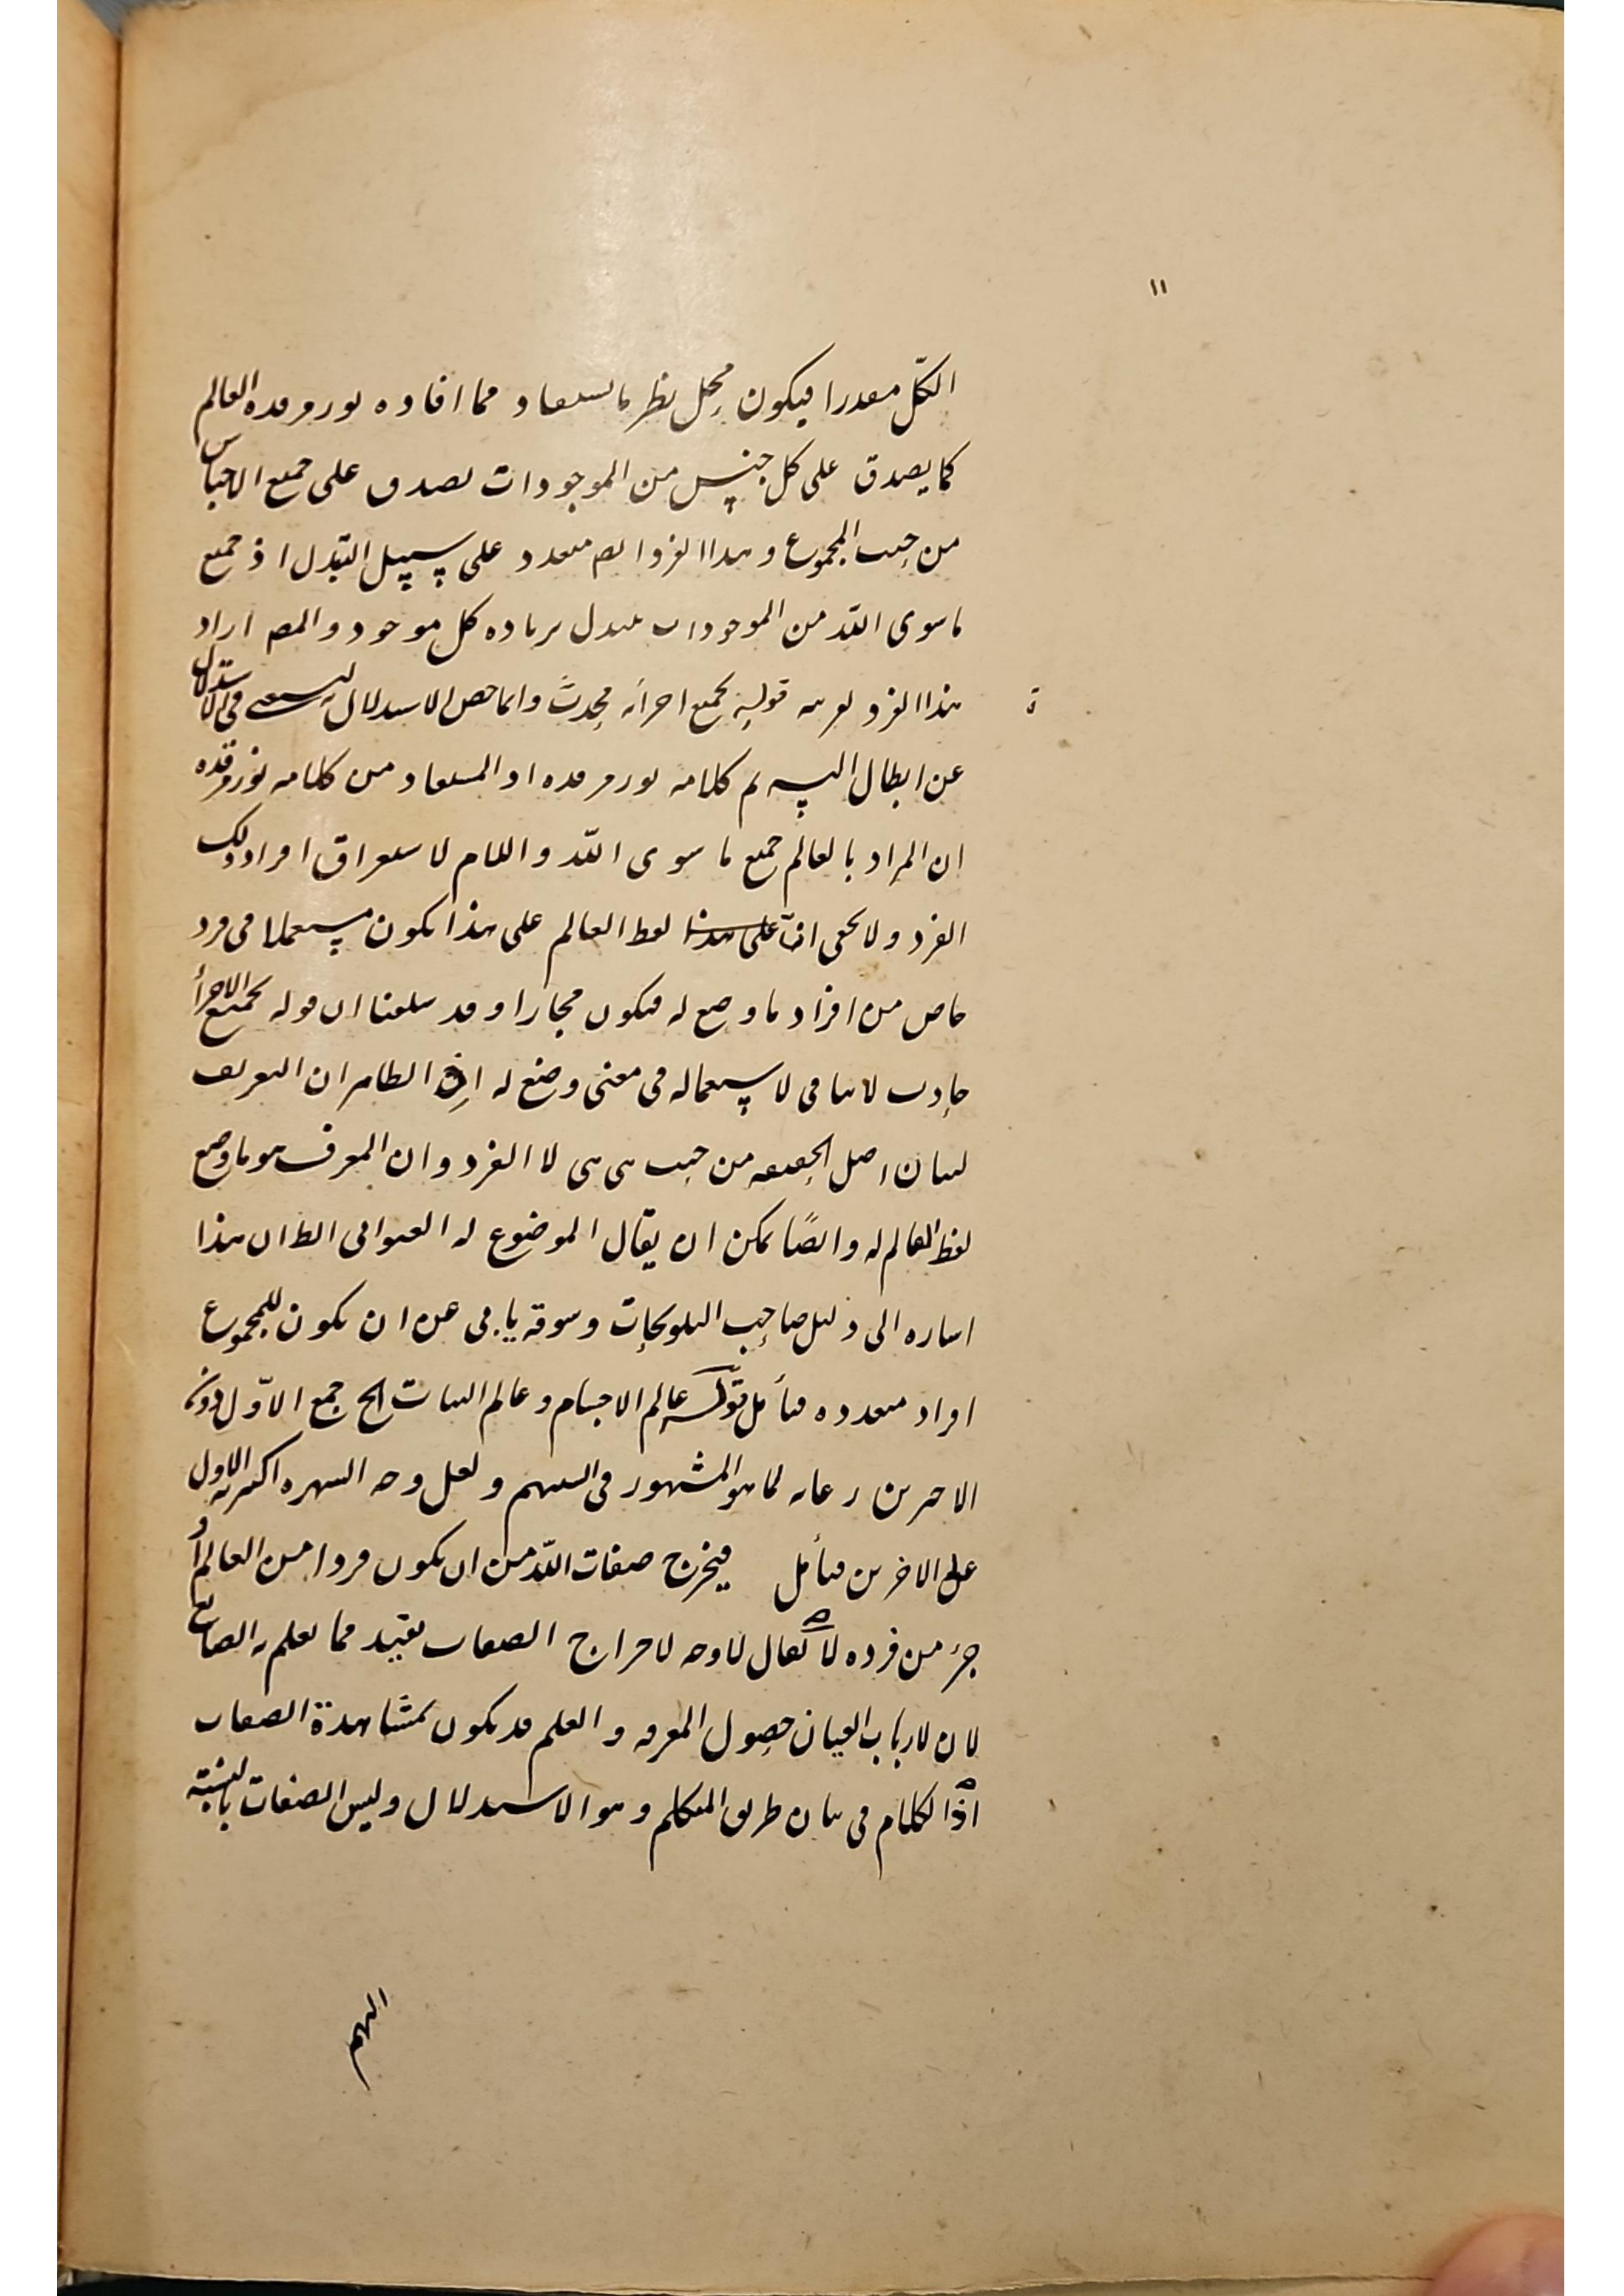 ١١
الكلّ مقدرا فيكون محل نظر ما يستفاد مما افاده نور مرقده العالم
كما يصدق على كل جنس من الموجودات يصدق على جميع الاجناس
من حيث المجموع وهذا الفرد ايضا متعدد على سبيل التبدل اذ جميع
ما سوى الله من الموجودات يتبدل بزيادة كل موجود والمص اراد
هذا الفرد بقرينة قوله بجميع اجزائه محدث وانما خص الاستدلال ليستغنى فى الاستدلال
عن ابطال التسـ تم كلامه نور مرقده اذ المستفاد من كلامه نور مرقده
ان المراد بالعالم جميع ما سوى الله واللام لاستغراق افراد ذلك
الفرد ولا يخفى ان على هذا لفظ العالم على هذا يكون مستعملا فى فرد
خاص من افراد ما وضع له فيكون مجازا وقد سلفنا ان قوله بجميع الاجزأ
حادث لا ينافى لاستعماله فى معنى وضع له اذ الظاهر ان التعريف
لبيان اصل الحقيقة من حيث هى هى لا الفرد وان المعرف هو ما وضع
لفظ العالم له وايضًا يمكن ان يقال الموضوع له العنوانى الظ ان هذا
اشارة الى دليل صاحب التلويحات وسوقه يابى عن ان يكون للمجموع
افراد متعدده فتأمل قوله عالم الاجسام وعالم النبات الخ جمع الاوّل دون
الاخرين رعاية لما هو المشهور فى السنتهم ولعل وجه الشهرة اكثرية الاول
على الاخرين فتأمل فيخرج صفات الله من ان يكون فردا من العالم أو
جزء من فرده لا يقال لا وجه لاخراج الصفات بقيد مما يعلم به الصانع
لان لارباب العيان حصول المعرفه والعلم قد يكون بمشاهدة الصفات
اذ الكلام فى بيان طريق المتكلم وهو الاستدلال وليس الصفات بالنسبة
اليهم